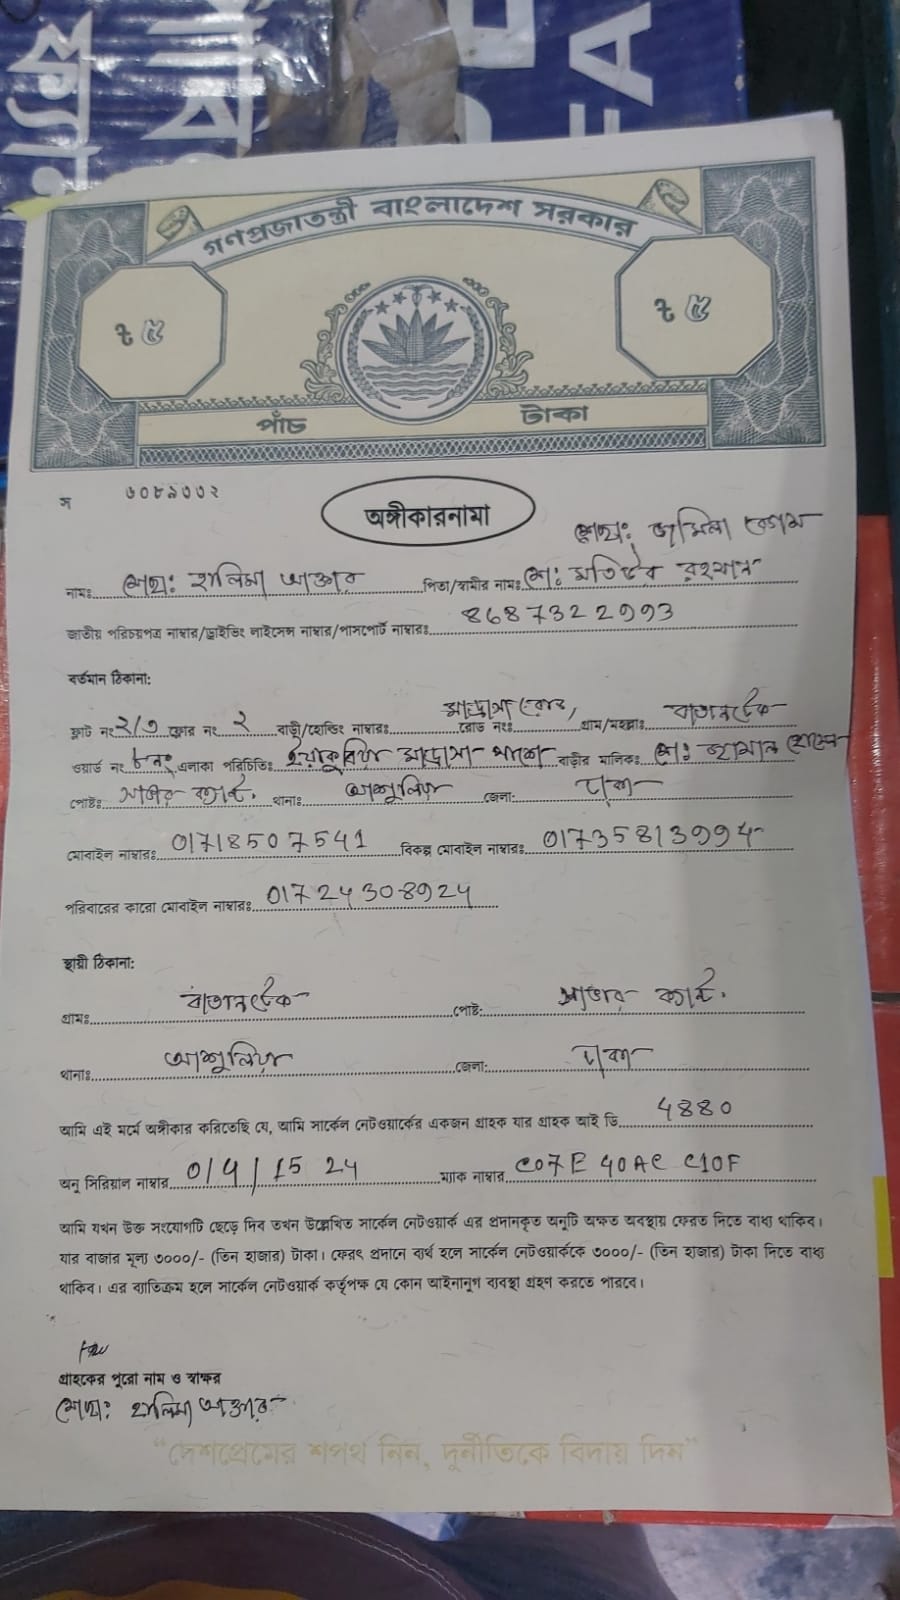 গণপ্রজাতন্ত্রী বাংলাদেশ সরকার
৳ ৫ ৳ ৫
পাঁচ টাকা
স ৬০৮৯৩৩২
অঙ্গীকারনামা
মোছা: জামিলা বেগম
নামঃ মোছা: হালিমা আক্তার পিতা/স্বামীর নামঃ মো: মতিউর রহমান
জাতীয় পরিচয়পত্র নাম্বার/ড্রাইভিং লাইসেন্স নাম্বার/পাসপোর্ট নাম্বারঃ 8687322993
বর্তমান ঠিকানা:
ফ্লাট নং ২/৩ ফ্লোর নং ২ বাড়ী/হোল্ডিং নাম্বারঃ রোড নংঃ মাদ্রাসা রোড, গ্রাম/মহল্লাঃ
ওয়ার্ড নং ৮নং এলাকা পরিচিতিঃ মাদ্রাসা পাশে বাড়ীর মালিক: মো: জামাল হোসেন
পোষ্টঃ সাভার ক্যান্ট. থানাঃ আশুলিয়া জেলা: ঢাকা
মোবাইল নাম্বারঃ 01718507541 বিকল্প মোবাইল নাম্বারঃ 01735813994
পরিবারের কারো মোবাইল নাম্বারঃ 01724308924
স্থায়ী ঠিকানা:
গ্রামঃ পোষ্ট: সাভার ক্যান্ট.
থানাঃ আশুলিয়া জেলা: ঢাকা
আমি এই মর্মে অঙ্গীকার করিতেছি যে, আমি সার্কেল নেটওয়ার্কের একজন গ্রাহক যার গ্রাহক আই ডি 4880
অনু সিরিয়াল নাম্বার 0/4/15 24 ম্যাক নাম্বার C07E 40AC C10F
আমি যখন উক্ত সংযোগটি ছেড়ে দিব তখন উল্লেখিত সার্কেল নেটওয়ার্ক এর প্রদানকৃত অনুটি অক্ষত অবস্থায় ফেরত দিতে বাধ্য থাকিব।
যার বাজার মূল্য ৩০০০/- (তিন হাজার) টাকা। ফেরৎ প্রদানে ব্যর্থ হলে সার্কেল নেটওয়ার্ককে ৩০০০/- (তিন হাজার) টাকা দিতে বাধ্য
থাকিব। এর ব্যাতিক্রম হলে সার্কেল নেটওয়ার্ক কর্তৃপক্ষ যে কোন আইনানুগ ব্যবস্থা গ্রহণ করতে পারবে।
গ্রাহকের পুরো নাম ও স্বাক্ষর
মোছা: হালিমা আক্তার
“দেশপ্রেমের শপথ নিন, দুর্নীতিকে বিদায় দিন”